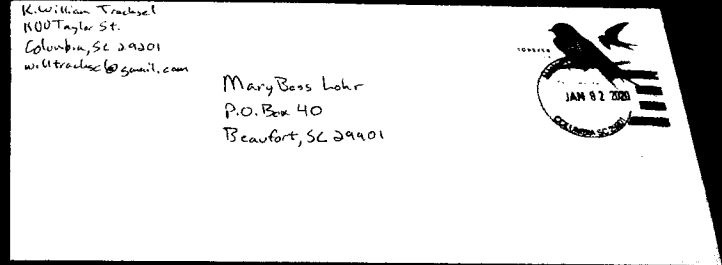 K. William Trachsel
1100 Taylor St.
Columbia, SC 29201
willtrachsel@gmail.com
Mary Bess Lohr
P.O. Box 40
Beaufort, SC 29901
FOREVER
JAN 02 2020
COLUMBIA SC 29201